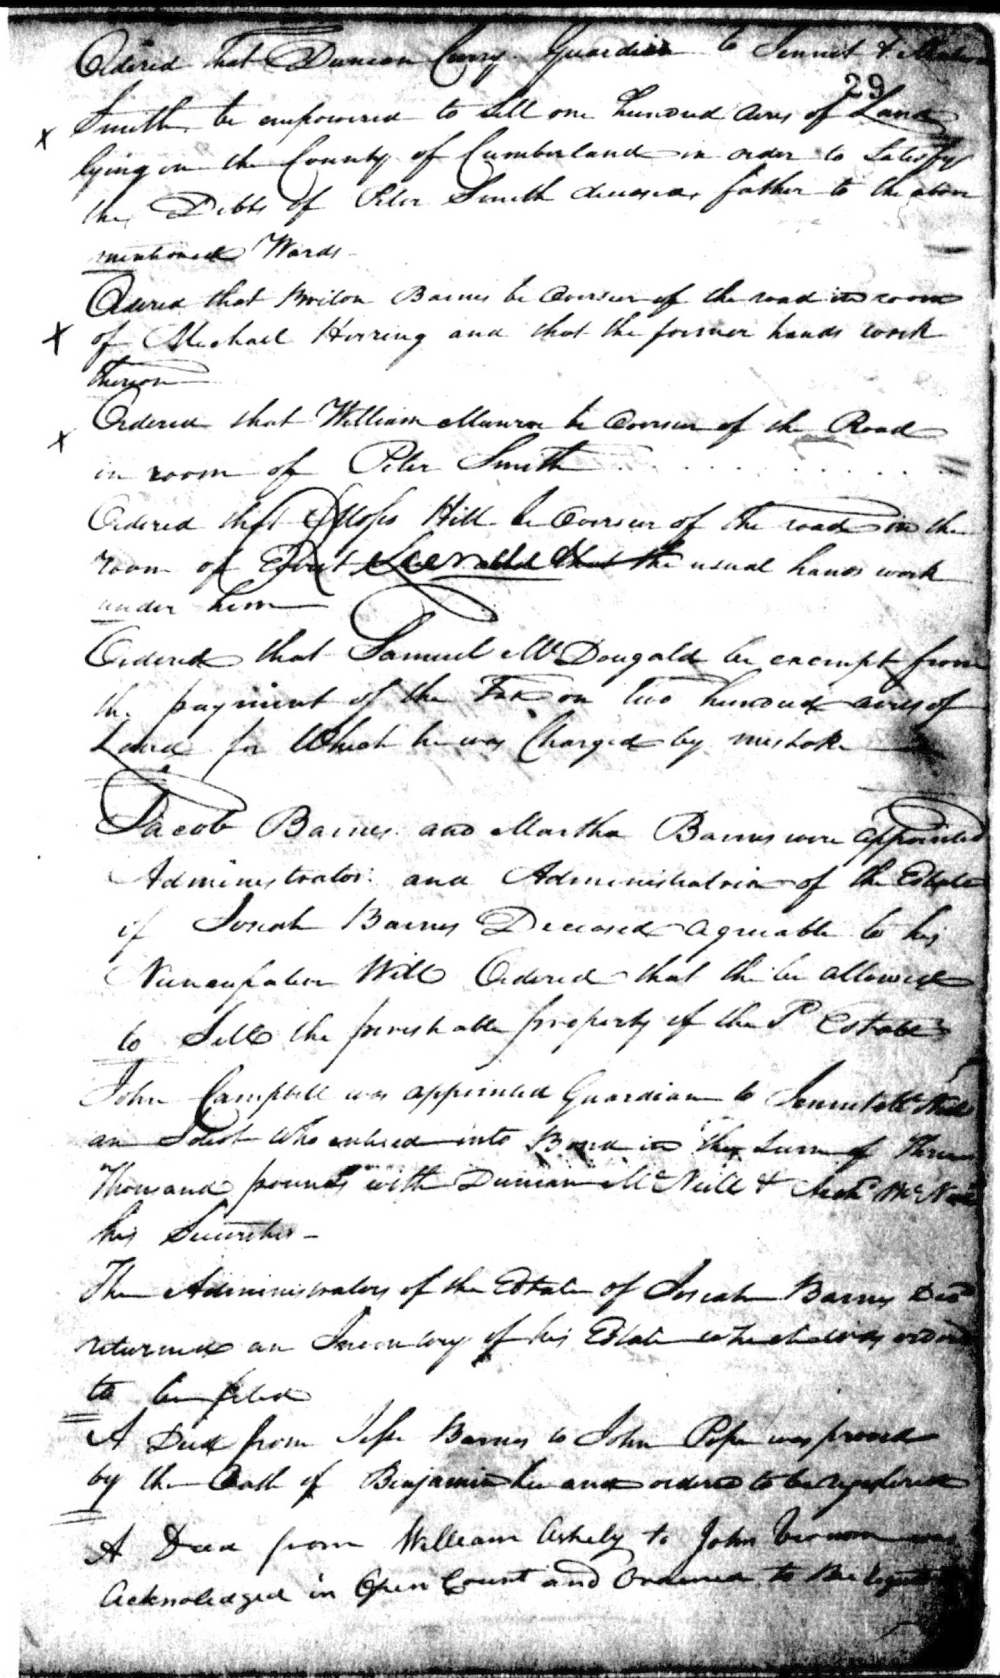 Ordered that Duncan Curry Guardian to Jennet &
29
Smith be empowered to Sell one hundred acres of Land
lying in the County of Cumberland in order to Satisfy
the Debts of Peter Smith deceased father to the above
mentioned Wards
Ordered that Briton Barnes be Overseer of the road in room
of Michael Herring and that the former hands work
thereon
Ordered that William Munroe be Overseer of the Road
in room of Peter Smith
Ordered that Moses Hill be Overseer of the road in the
room of that the usual hands work
under him
Ordered that Samuel McDougald be exempt from
the payment of the Tax on two hundred acres of
Land for Which he was Charged by mistake
Jacob Barnes and Martha Barnes were appointed
Administrator and Administratrix of the Estate
of Josiah Barnes Deceased agreeable to his
Nuncupative Will Ordered that the be allowed
to Sell the perishable property of the Sd Estate
John Campbell was appointed Guardian to Jennet Mc
an Idiot Who entered into Bond in the Sum of Three
Thousand pounds with Duncan McNeill & Archd McNeill
his Securities
The Administrators of the Estate of Josiah Barnes Decd
returned an Inventory of his Estate which was ordered
to be filed
A Deed from Jesse Barnes to John Pope was proved
by the Oath of Benjamin Lee and ordered to be registered
A Deed from William Ashely to John was
Acknoledged in Open Court and Ordered to Be